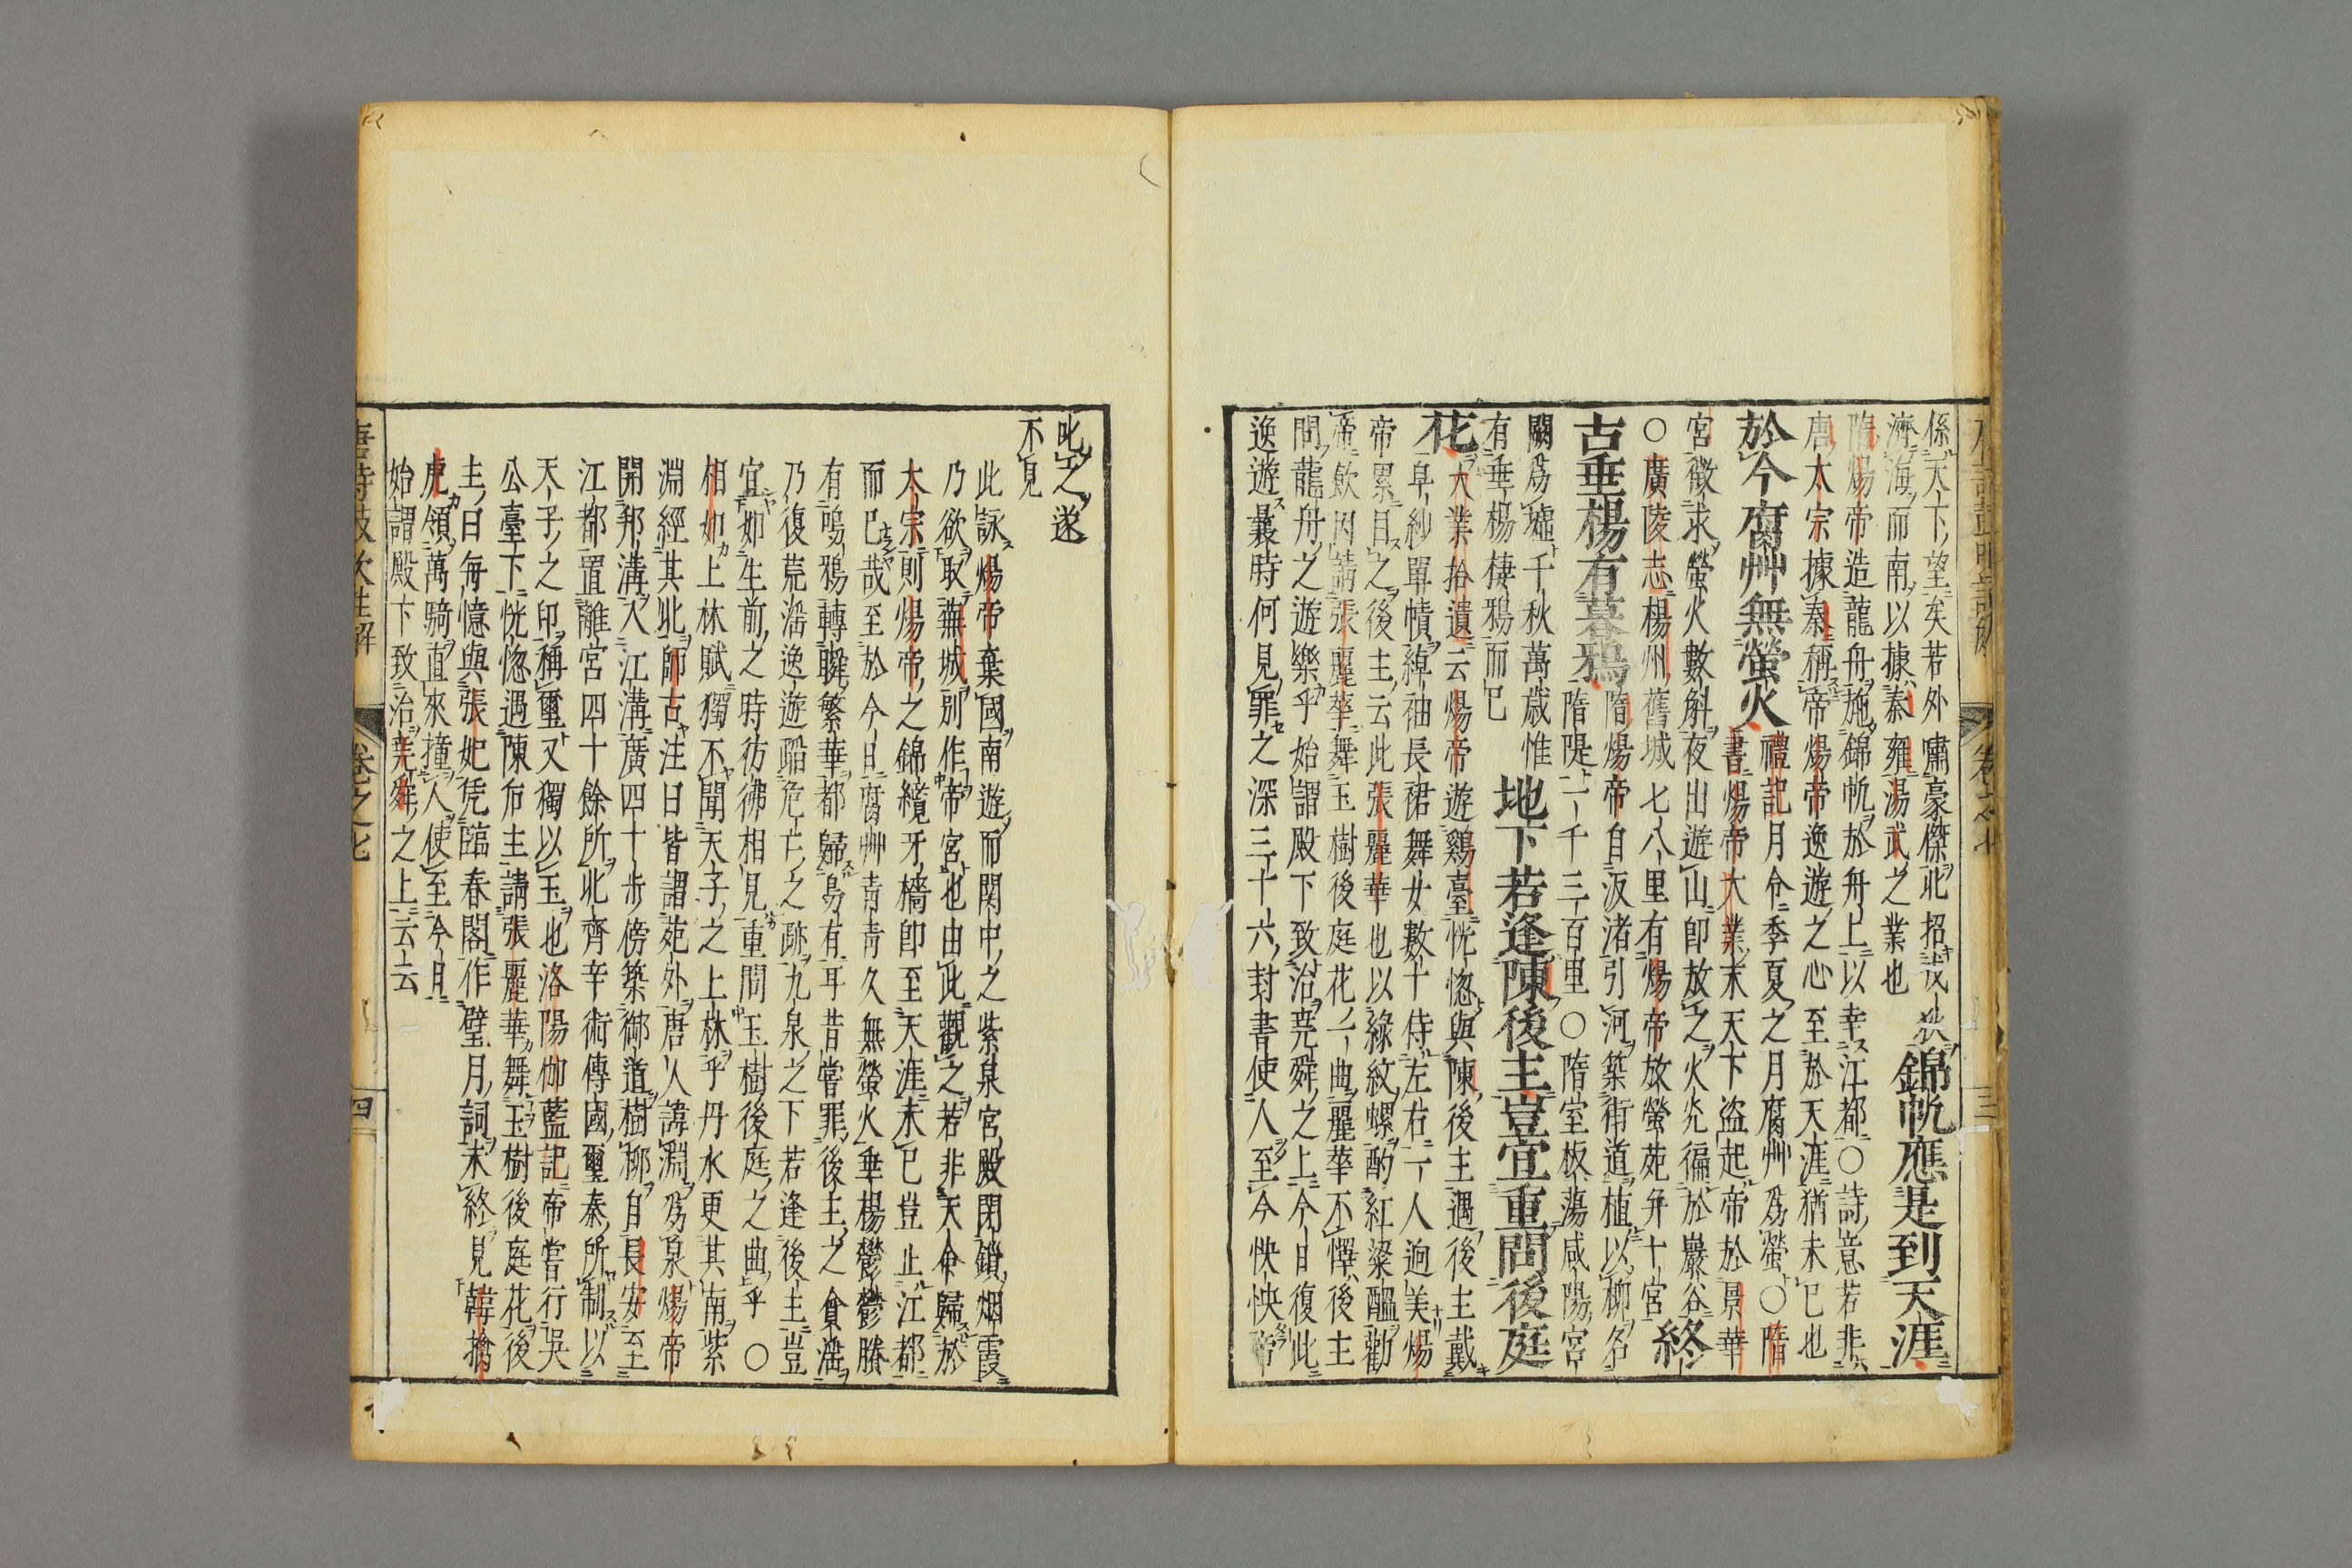 係天下望矣若外嘯豪傑北招戎狄錦帆應是到天涯
濟海而南以據秦雍湯武之業也
隋煬帝造龍舟施錦帆於舟上以幸江都○詩意若非
唐太宗據秦稱帝煬帝逸遊之心至於天涯猶未已也
於今腐艸無螢火禮記月令季夏之月腐艸爲螢○隋
書煬帝大業末天下盜起帝於景華
宮徵求螢火數斛夜出遊山卽放之火光徧於巖谷終
○廣陵志楊州舊城七八里有煬帝放螢苑并十宮
古垂楊有暮鴉隋煬帝自汳渚引河築街道植以柳名
隋隄一千三百里○隋室板蕩咸陽宮
闕爲墟千秋萬歲惟
有垂楊棲鴉而已
地下若逢陳後主豈宜重問後庭
花大業拾遺云煬帝遊鷄臺恍惚與陳後主遇後主戴
阜紗單幘綽袖長裙舞女數十侍左右一人逈美煬
帝累目之後主云此張麗華也以綠紋螺酌紅粱醞勸
帝飮因請張麗華舞玉樹後庭花一曲麗華不懌後主
問龍舟之遊樂乎始謂殿下致治堯舜之上今日復此
逸遊曩時何見罪之深三十六封書使人至今怏怏帝
叱之遂
不見
此詠煬帝棄國南遊而関中之紫泉宮殿閉鎖烟霞
乃欲取蕪城別作帝宮也由此觀之若非天命歸於
太宗則煬帝之錦纜牙檣卽至天涯未已豈止江都
而已哉至於今日腐艸靑靑久無螢火垂楊鬱鬱賸
有鳴鴉轉瞬繁華都歸烏有耳昔嘗罪後主之貪滛
乃復荒滛逸遊蹈危亡之跡九泉之下若逢後主豈
宜如生前之時彷彿相見重問玉樹後庭之曲乎○
相如上林賦獨不聞天子之上林乎丹水更其南紫
淵經其北師古注曰皆謂苑外唐人諱淵爲泉煬帝
開邦溝入江溝廣四十步傍築御道樹柳自長安至
江都置離宮四十餘所北齊辛術傳國璽秦所制以
天子之印稱璽又獨以玉也洛陽伽藍記帝嘗行吳
公臺下恍惚遇陳后主請張麗華舞玉樹後庭花後
主曰每憶與張妃凭臨春閣作璧月詞未終見韓擒
虎領萬騎直來撞人使至今月
始謂殿下致治堯舜之上云云
卷之七
四
卷之七
三